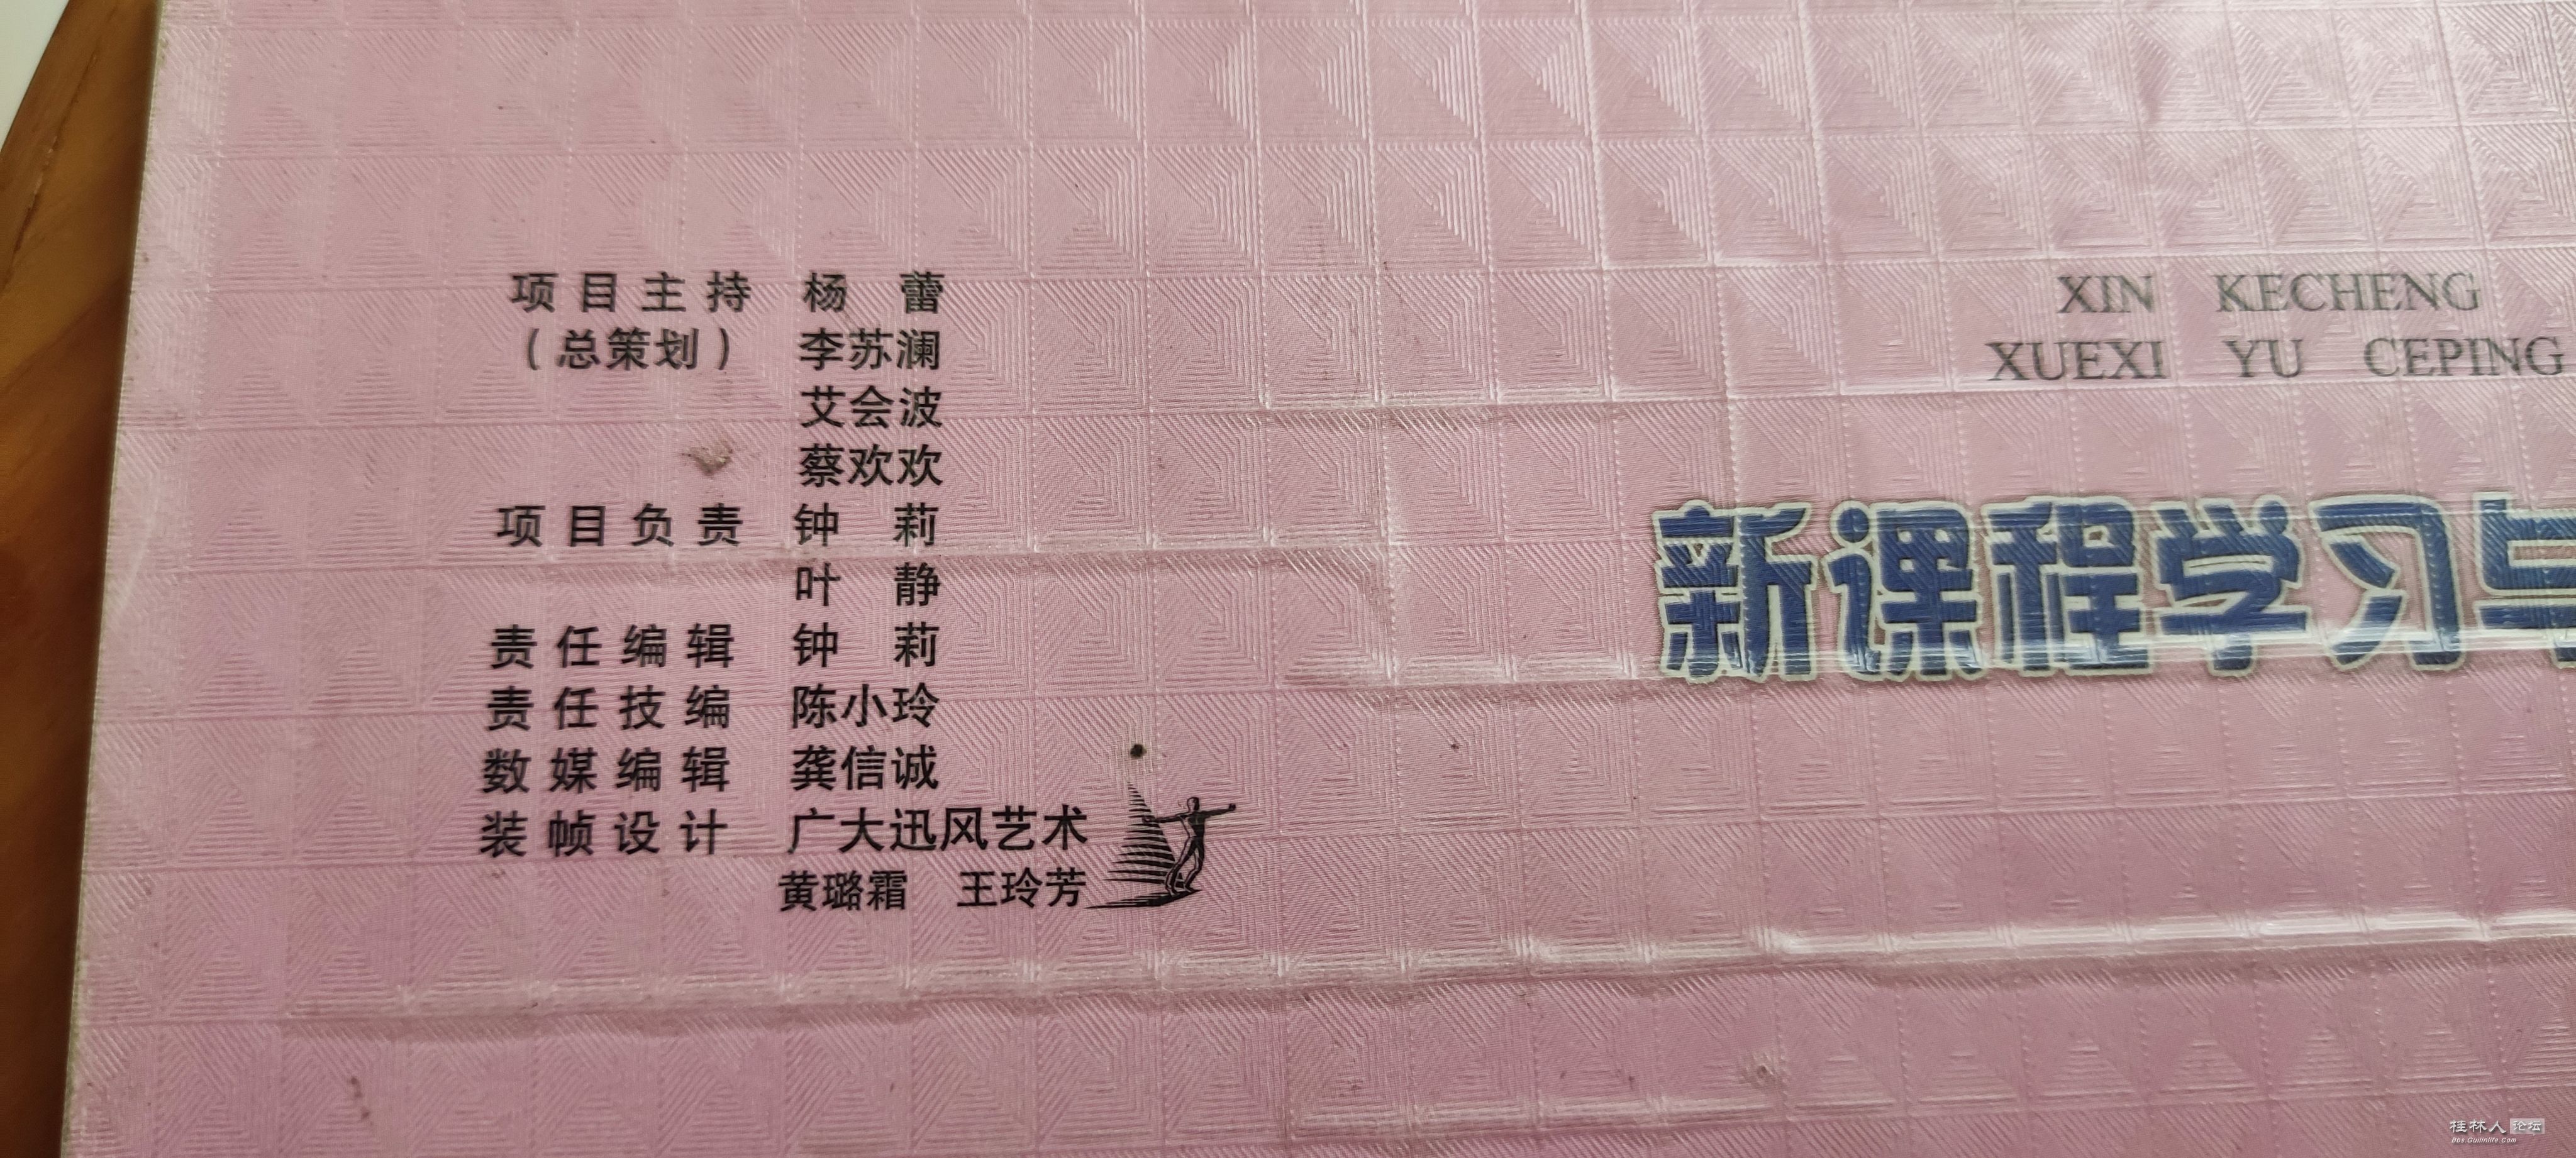 项目主持 杨 蕾
（总策划） 李苏澜
艾会波
蔡欢欢
项目负责 钟 莉
叶 静
责任编辑 钟 莉
责任技编 陈小玲
数媒编辑 龚信诚
装帧设计 广大迅风艺术
黄璐霜 王玲芳
XIN KECHENG
XUEXI YU CEPING
新课程学习与
桂林人论坛
Bbs.Guilinlife.Com